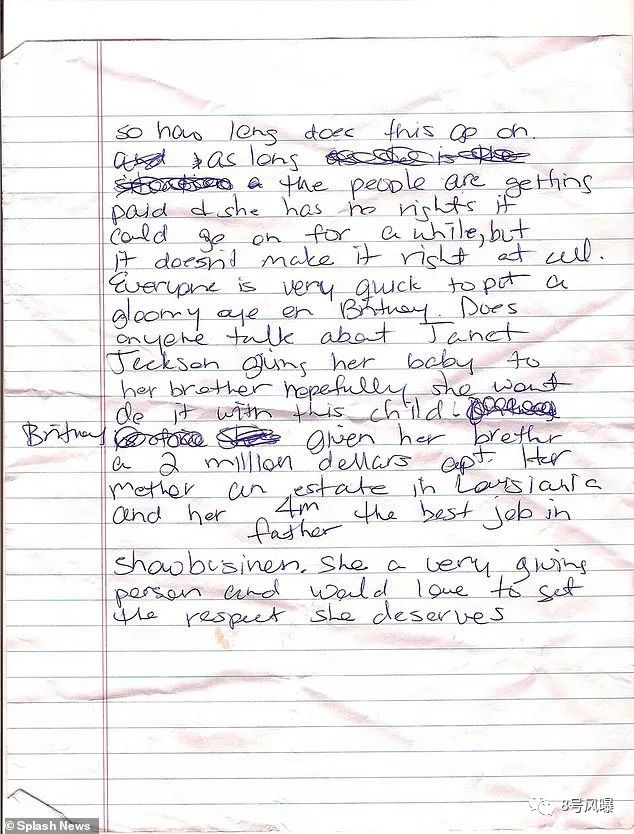 so how long does this go on.
and as long
the people are getting
paid & she has no rights it
could go on for a while, but
it doesn't make it right at all.
Everyone is very quick to put a
gloomy eye on Britney. Does
anyone talk about Janet
Jackson giving her baby to
her brother hopefully she wont
do it with this child.
Britney given her brother
a 2 million dollars apt. Her
mother an estate in Louisiania
and her 4m the best job in
father
showbusiness. She a very giving
person and would love to get
the respect she deserves
© Splash News
8号风曝